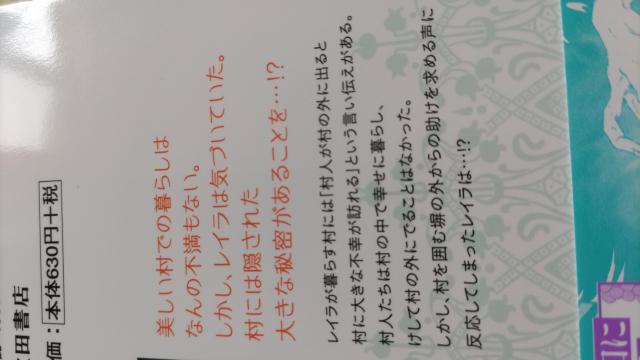 美しい村での暮らしは
なんの不満もない。
しかし、レイラは気づいていた。
村には隠された
大きな秘密があることを…!?
レイラが暮らす村には「村人が村の外に出ると
村に大きな不幸が訪れる」という言い伝えがある。
村人たちは村の中で幸せに暮らし、
けして村の外にでることはなかった。
しかし、村を囲む塀の外からの助けを求める声に
反応してしまったレイラは…!?
田書店
価:本体630円+税
に